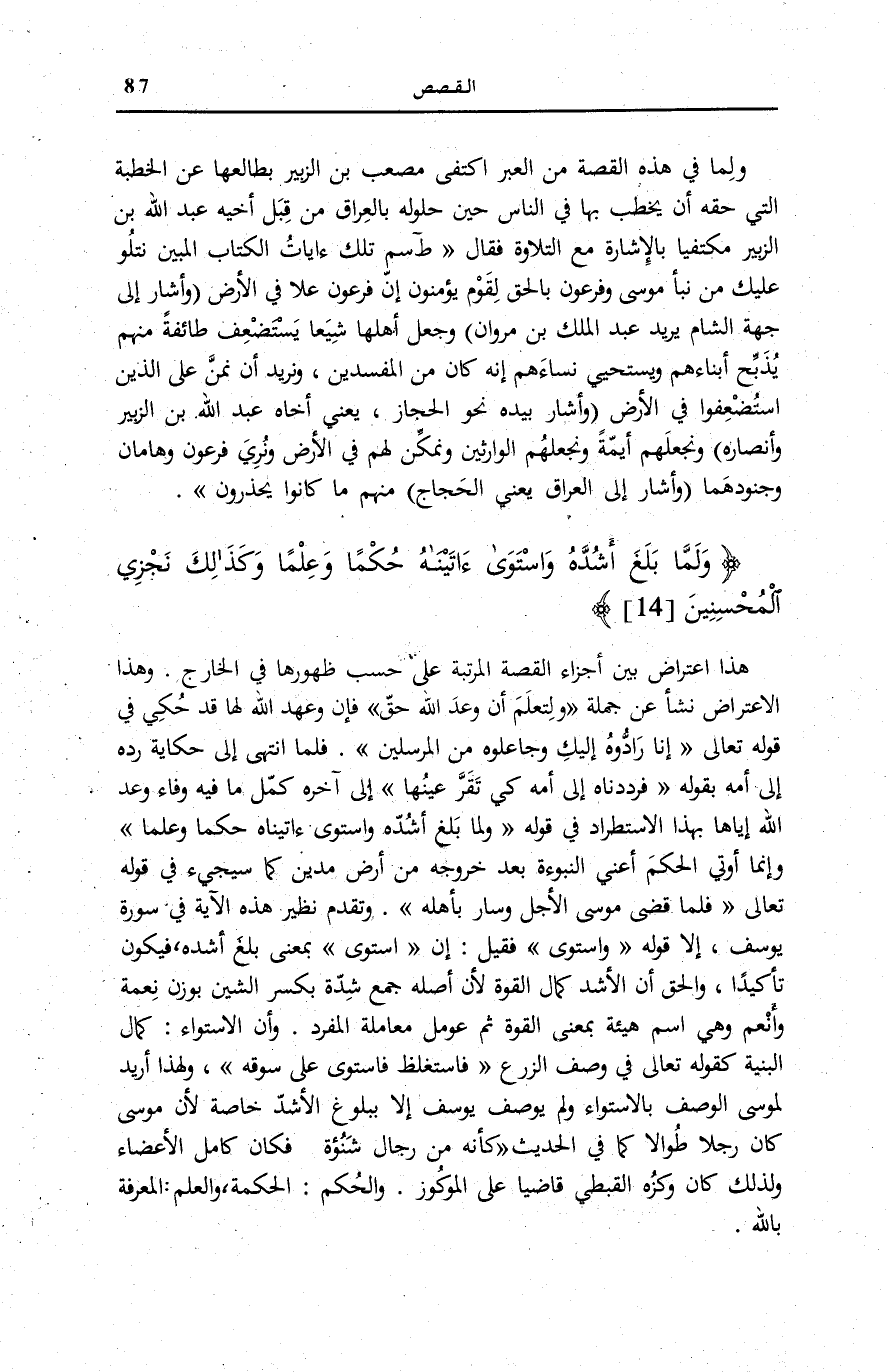 القصص 87
ولِما في هذه القصة من العبر اكتفى مصعب بن الزبير بطالعها عن الخطبة
التي حقه أن يخطب بها في الناس حين حلوله بالعِراق من قِبَل أخيه عبد الله بن
الزبير مكتفيا بالإِشارة مع التلاوة فقال « طَٓسم تلك ءاياتُ الكتاب المبين نتلُو
عليك من نبأ موسى وفرعون بالحق لِقَوْم يؤمنون إنّ فرعون علا في الأرض (وأشار إلى
جهة الشام يريد عبد الملك بن مروان) وجعل أهلها شِيَعا يَسْتَضْعِف طائفةً منهم
يُذَبِّح أبناءهم ويستحيي نساءَهم إنه كان من المفسدين ، ونريد أن نمنَّ على الذين
استُضْعِفوا في الأرض (وأشار بيده نحو الحجاز ، يعني أخاه عبد الله بن الزبير
وأنصاره) ونجعلَهم أيمّةً ونجعلهُم الوارثين ونمكِّن لهم في الأرض ونُرِيَ فرعون وهامان
وجنودهَما (وأشار إلى العراق يعني الحَجاج) منهم ما كانوا يحْذرون » .
﴿ وَلَمَّا بَلَغَ أَشُدَّهُ وَاسْتَوَىٰ ءَاتَيْنَـٰهُ حُكْمًا وَعِلْمًا وَكَذَٰلِكَ نَجْزِي
ٱلْمُحْسِنِينَ [14] ﴾
هذا اعتراض بين أجزاء القصة المرتبة على حسب ظهورها في الخارج . وهذا
الاعتراض نشأ عن جملة «ولِتعلَمَ أن وعدَ الله حقّ» فإن وعهد الله لها قد حُكِي في
قوله تعالى « إنا رَادُّوهُ إليكِ وجاعلوه من المرسلين » . فلما انتهى إلى حكاية رده
إلى أمه بقوله « فرددناه إلى أمه كي تَقَرَّ عينُها » إلى آخره كمّل ما فيه وفاء وعد
الله إياها بهذا الاستطراد في قوله « ولما بَلغ أشُدّه واستوى ءاتيناه حكما وعلما »
وإنما أوتي الحكمَ أعني النبوءة بعد خروجه من أرض مدين كما سيجيء في قوله
تعالى « فلما قضى موسى الأجل وسار بأهله » . وتقدم نظير هذه الآية في سورة
يوسف ، إلا قوله « واستوى » فقيل : إن « استوى » بمعنى بلغَ أشده،فيكون
تأكيدًا ، والحق أن الأشد كمال القوة لأن أصله جمع شِدّة بكسر الشين بوزن نِعمة
وأَنْعم وهي اسم هيئة بمعنى القوة ثم عومل معاملة المفرد . وأن الاستواء : كمال
البنية كقوله تعالى في وصف الزرع « فاستغلظ فاستوى على سوقه » ، ولهذا أريد
لموسى الوصف بالاستواء ولم يوصف يوسف إلا ببلوغ الأشدّ خاصة لأن موسى
كان رجلا طُوالا كما في الحديث«كأنه من رجال شَنُؤة فكان كامل الأعضاء
ولذلك كان وكزُه القبطي قاضيا على الموكُوز . والحُكم : الحكمة،والعلم:المعرفة
بالله .